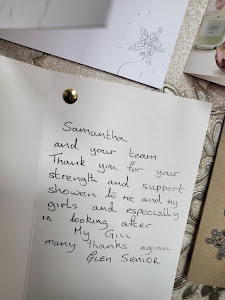 Samantha
and your team
Thank you for your
strength and support
showen to me and my
girls and especially
in looking after
My Gill
many thanks agian
Glen Senior